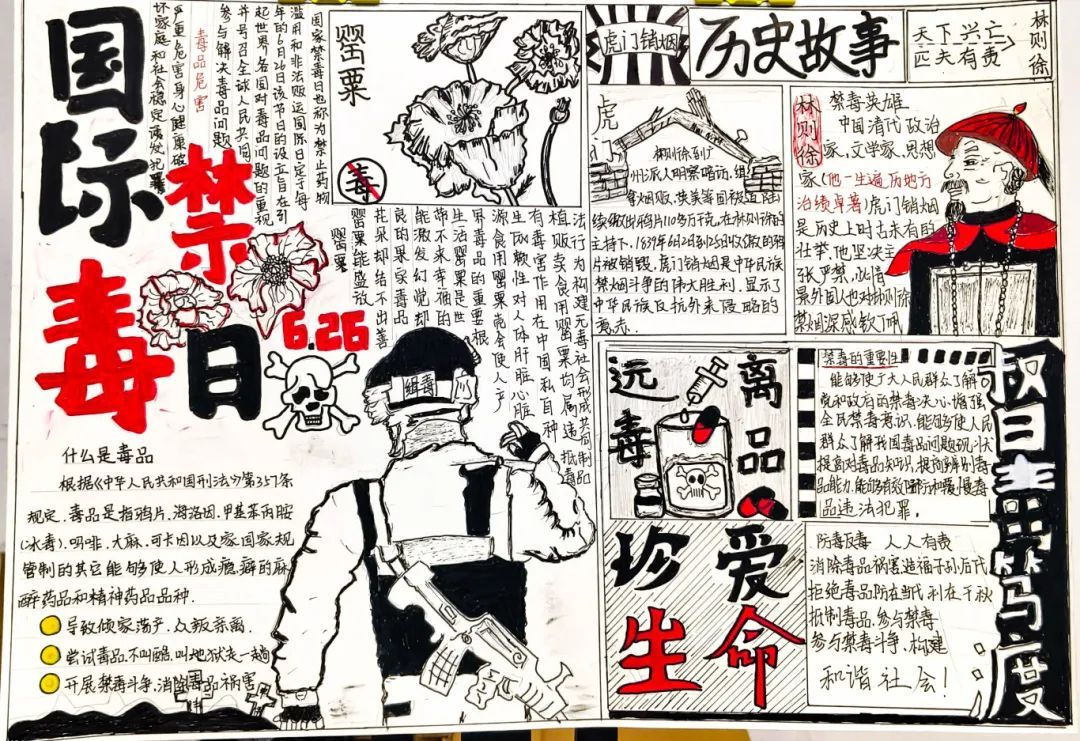 国际禁毒日
6.26
毒品危害
国家禁毒日也称为禁止药物
滥用和非法贩运国际日定于每
年的6月26日该节日的设立旨在引
起世界各国对毒品问题的重视
并号召全球人民共同
参与解决毒品问题
严重危害身心健康破
坏家庭和社会稳定诱发犯罪
罂粟
毒
罂粟
罂粟能盛放
花朵却结不出善
良的果实毒品
能激发幻觉却
带不来幸福的
生活罂粟是世
界毒品的重要根
源食用罂粟壳会使人产
生成赖性对人体肝脏心脏
有毒害作用在中国私自种
植贩卖食用罂粟均属违
法行为构建无毒社会形成共同
抵制毒品
缉毒
什么是毒品
根据《中华人民共和国刑法》第357条
规定.毒品是指鸦片.海洛因.甲基苯丙胺
(冰毒).吗啡.大麻.可卡因以及家国家规
管制的其它能够使人形成瘾癖的麻
醉药品和精神药品品种.
导致倾家荡产.众叛亲离.
尝试毒品.不叫酷.叫地狱走一趟
开展禁毒斗争,消除毒品祸害
虎门销烟
历史故事
天下兴亡
匹夫有责
林则徐
虎门
林则徐到广
州后派人明察暗访,
主持下.1839年6月
片被销毁.虎门销烟是中华民族
禁烟斗争的伟大胜利.显示了
中华民族反抗外来侵略的
意志.
林则徐
禁毒英雄
中国清代政治
家,文学家,思想
家(他一生遍历地方
治绩卓著)虎门销烟
是历史上时古未有的
壮举,他坚决主
张严禁,
景外国人也对林则徐
禁烟深感钦佩
远离毒品
禁毒的重要性
能够使广大人民群众了解
党和政府的禁毒决心,增强
全民禁毒意识,能够使人民
群众了解我国毒品问题现状
提高对毒品知识,提高辨别毒
品能力,能够有效
品违法犯罪.
珍爱生命
防毒反毒 人人有责
消除毒品祸害造福子孙后代
拒绝毒品防在当代 利在千秋
抵制毒品,参与禁毒
参与禁毒斗争,构建
和谐社会!